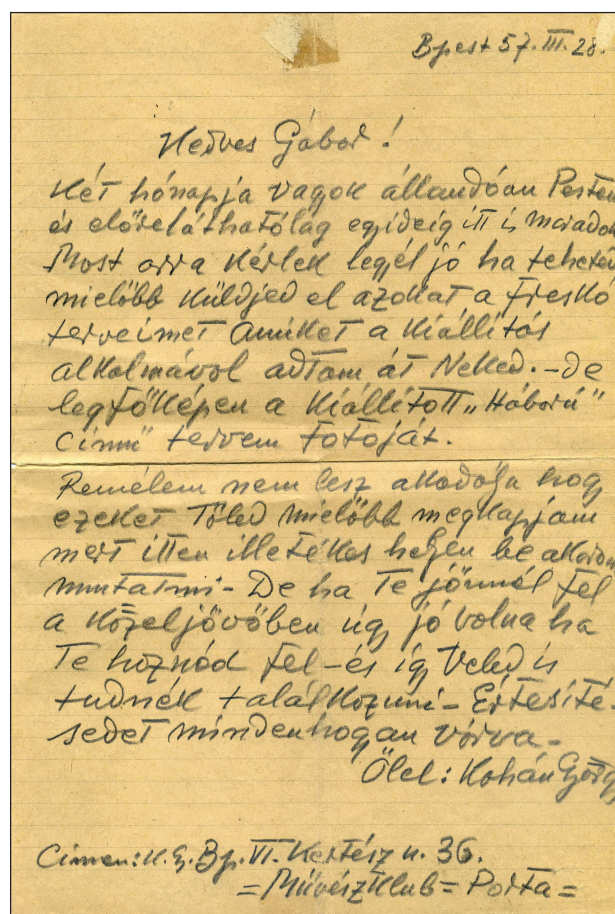 Bpest 57. III. 28.
Kedves Gábor!
Két hónapja vagok állandóan Pesten
és előreláthatólag egyideig itt is maradok
Most arra kérlek legél jó ha teheted
mielőbb küldjed el azokat a freskó
terveimet amiket a kiállítás
alkalmával adtam át Neked. - De
legfőképen a kiállított „Háború"
című" tervem fotóját.
Remélem nem lesz akadálya hogy
ezeket Tőled mielőbb megkapjam
mert itten illetékes helyen be akarom
mutatni - De ha Te jönnél fel
a közeljövőben úgy jó volna ha
Te hoznád fel - és így Veled is
tudnék találkozni - Értesíté-
sedet mindenhogyan várva -
Ölel: Kohán György
Címem: K. G. Bp. VI. Kertész u. 36.
= Művész Klub = Porta =